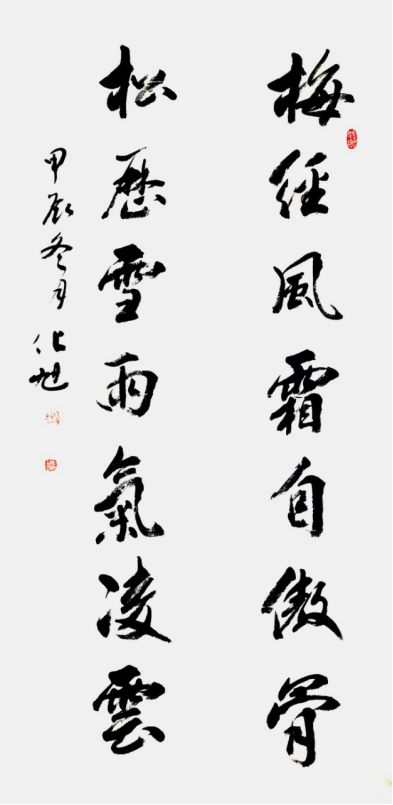 梅經風霜自傲骨
松歷雪雨氣凌雲
甲辰冬月化旭